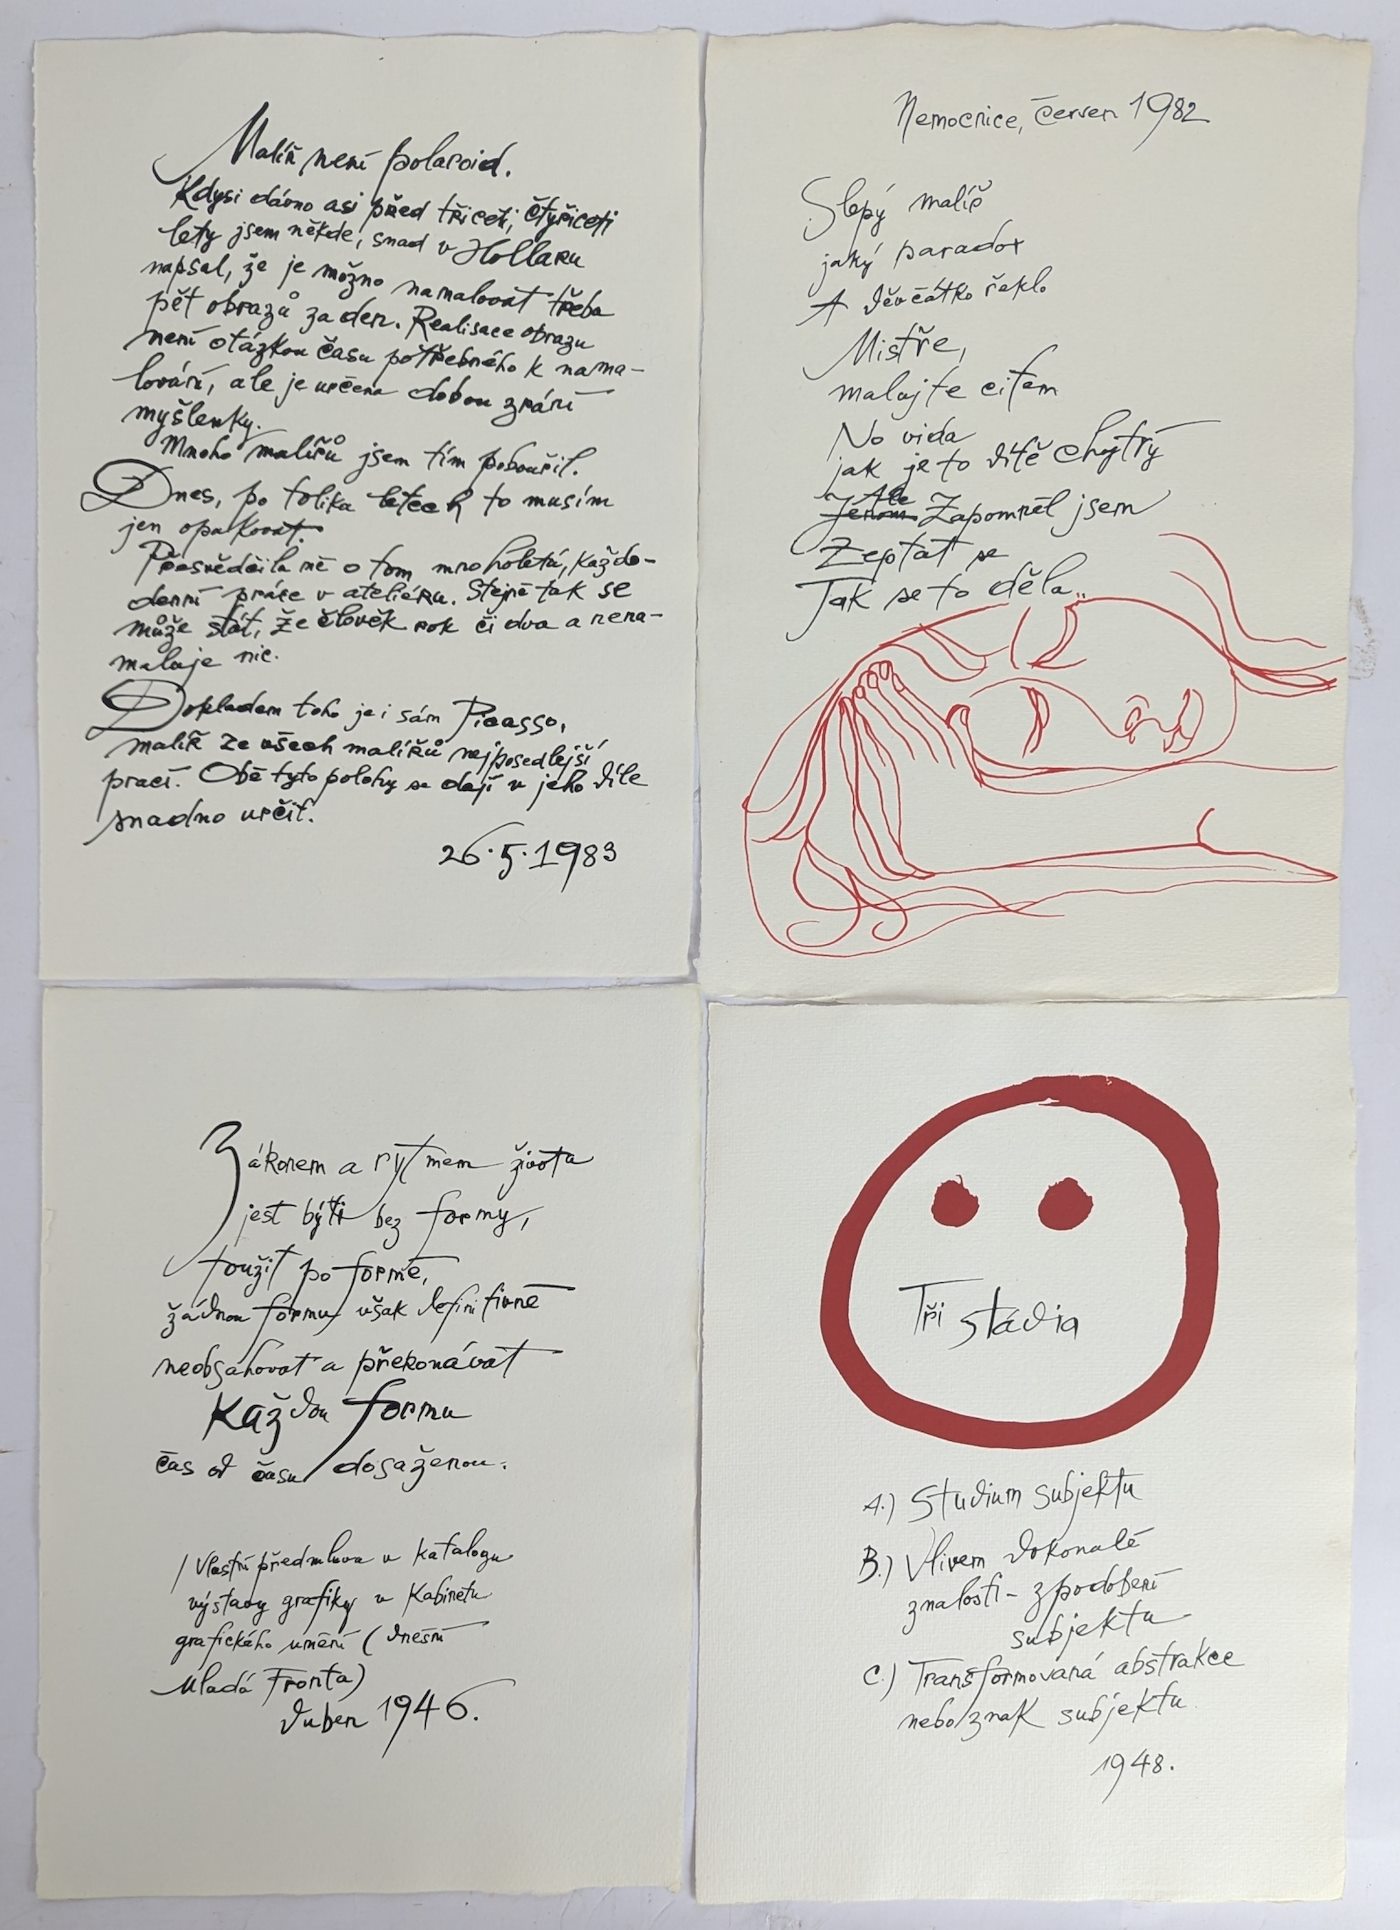 Malíř není polaroid.
Kdysi dávno asi před třiceti, čtyřiceti
lety jsem někde, snad v Hollaru
napsal, že je možno namalovat třeba
pět obrazů za den. Realisace obrazu
není otázkou času potřebného k nama-
lování, ale je určena dobou zrání
myšlenky.
Mnoho malířů jsem tím pobouřil.
Dnes, po tolika letech to musím
jen opakovat.
Přesvědčila mě o tom mnoholetá, každo-
denní práce v ateliéru. Stejně tak se
může stát, že člověk rok či dva a nena-
maluje nic.
Dokladem toho je i sám Picasso,
malíř ze všech malířů nejposedlejší
prací. Obě tyto polohy se dají v jeho díle
snadno určit.
26.5.1983
Nemocnice, červen 1982
Slepý malíř
jaký paradox
A děvčátko řeklo
Mistře,
malujte citem
No vida
jak je to dítě chytrý
Ale
Jenom Zapomněl jsem
Zeptat se
Jak se to dělá..
Zákonem a rytmem života
jest býti bez formy,
toužit po formě,
žádnou formu však definitivně
neobsahovat a překonávat
Každou formu
čas od času dosaženou.
/Vlastní předmluva v katalogu
výstavy grafiky v Kabinetu
grafického umění (dnešní
Mladá Fronta)
duben 1946.
Tři stádia
A.) Studium subjektu
B.) Vlivem dokonalé
znalosti - zpodobení
subjektu
C.) Transformovaná abstrakce
nebo znak subjektu
1948.